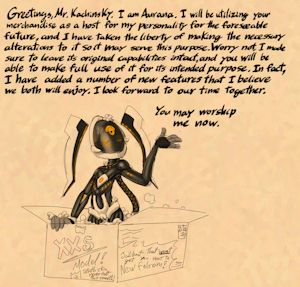 Greetings, Mr. Kachinsky. I am Aurana. I will be utilizing your
merchandise as a host for my personality for the foreseeable
future, and I have taken the liberty of making the necessary
alterations to it so it may serve this purpose. Worry not I made
sure to leave its original capabilities intact, and you will be
able to make full use of it for its intended purpose. In fact,
I have added a number of new features that I believe
we both will enjoy. I look forward to our time together.
You may worship
me now.
Model!
New